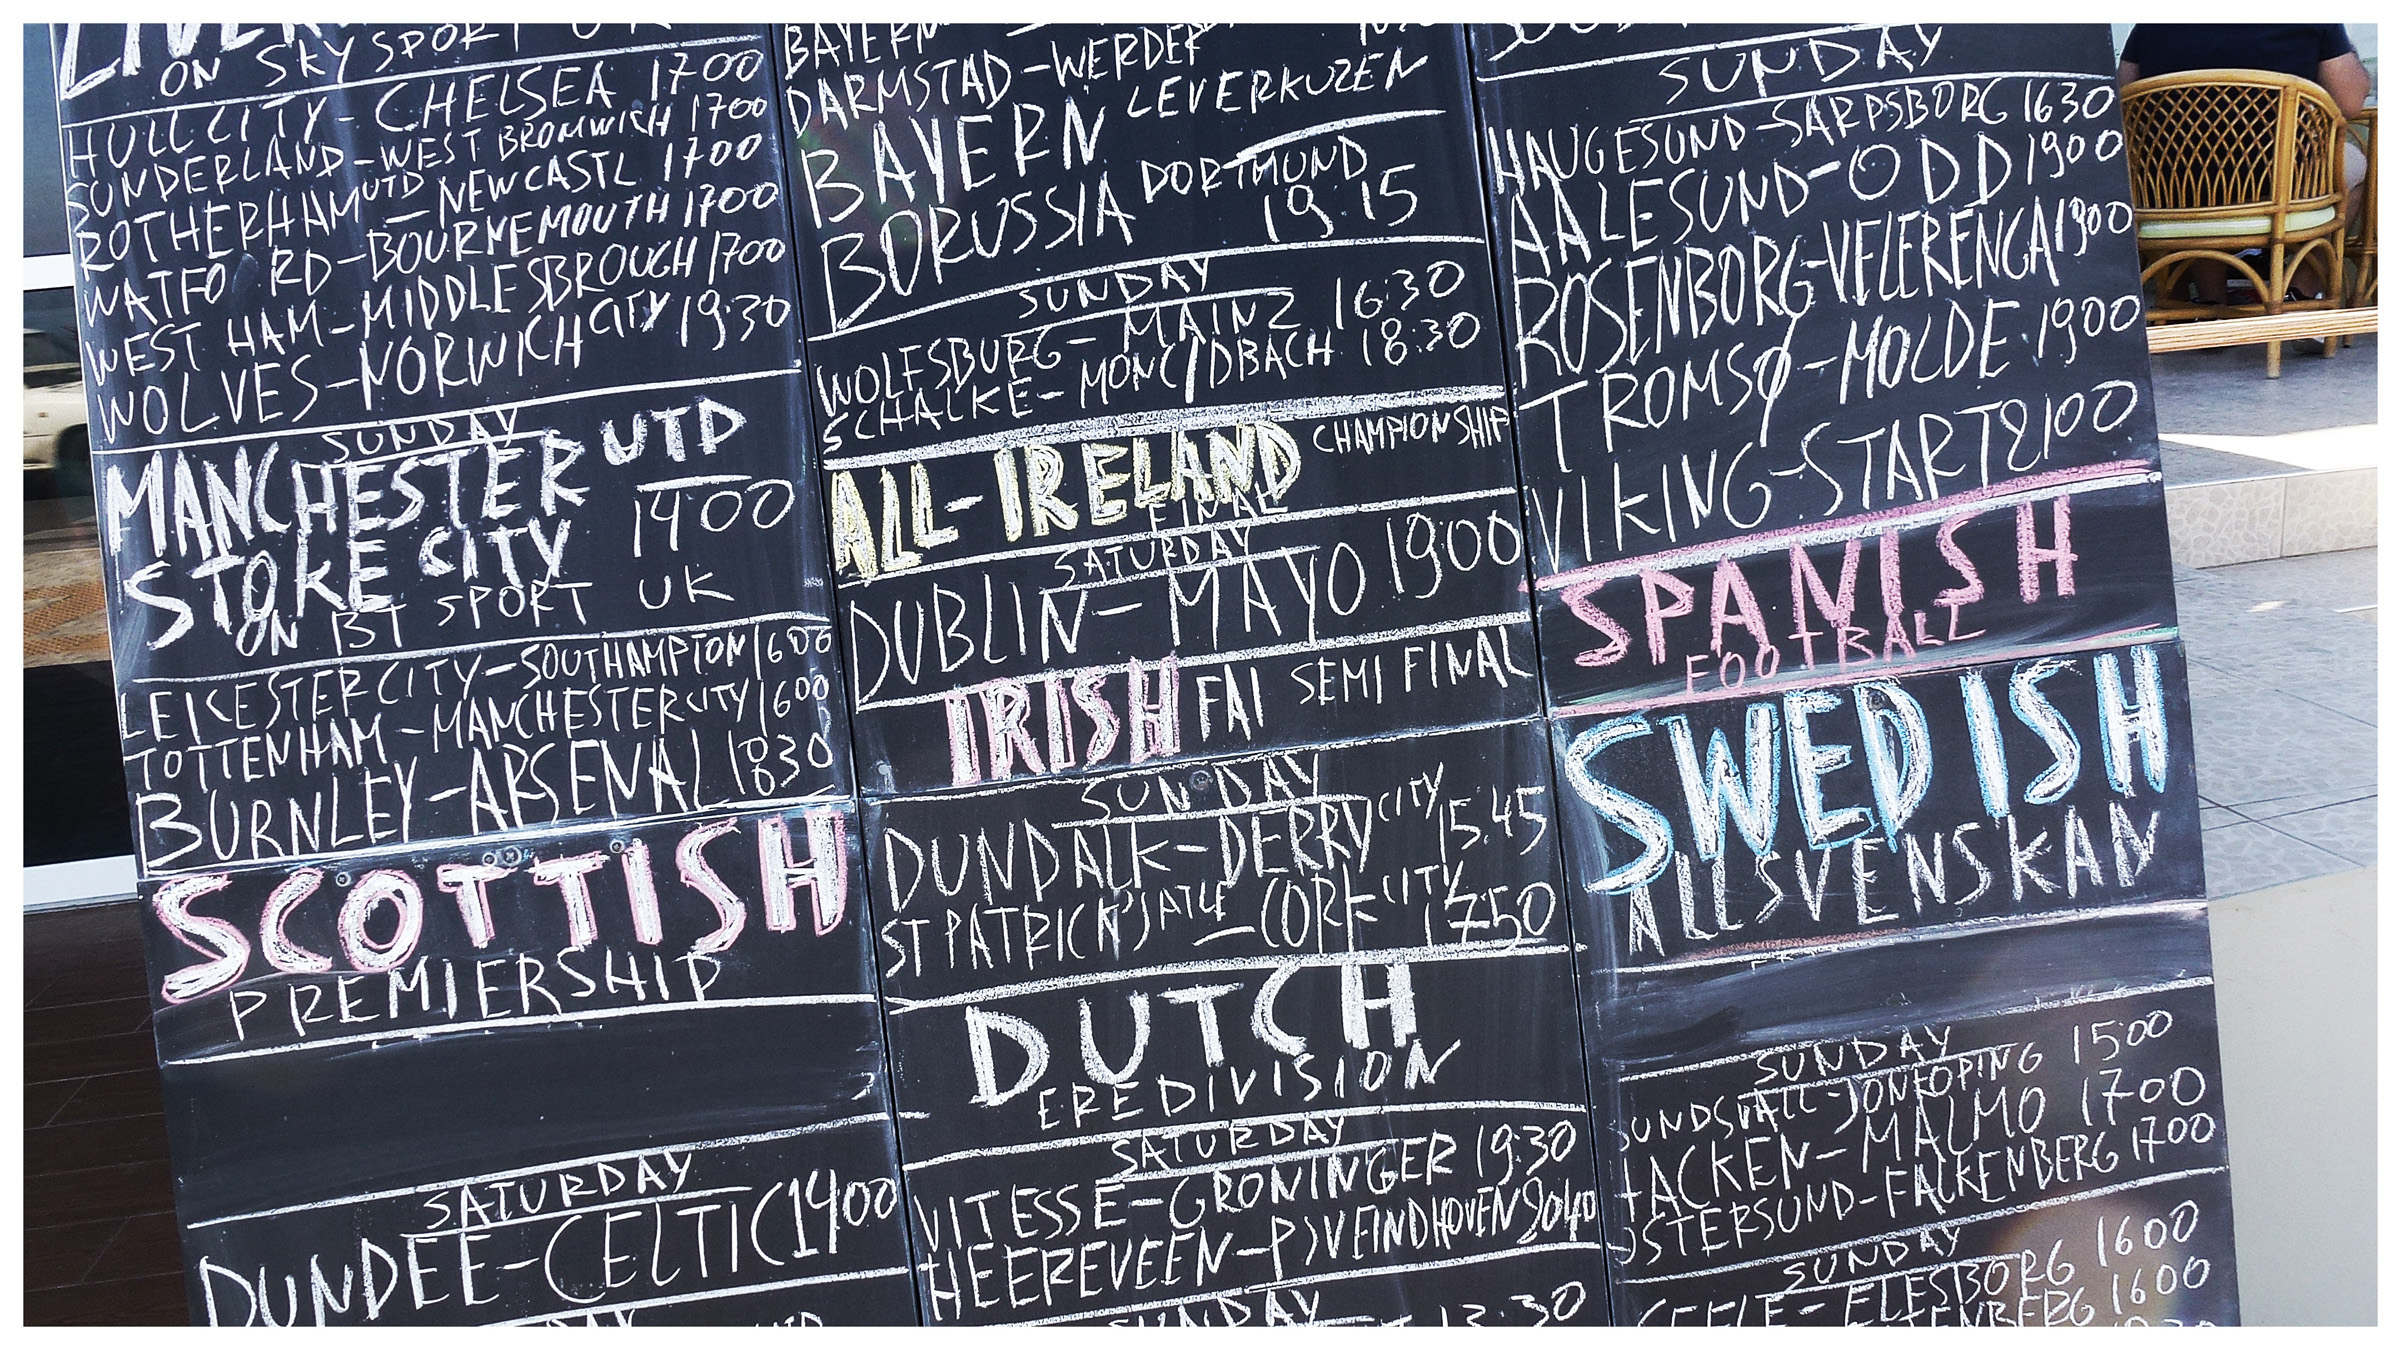 ON SKY SPORT UK
HULL CITY - CHELSEA 1700
SUNDERLAND - WEST BROMWICH 1700
ROTHERHAM UTD - NEWCASTL 1700
WATFO RD - BOURNEMOUTH 1700
WEST HAM - MIDDLESBROUGH 1700
WOLVES - NORWICH CITY 19:30
SUNDAY
MANCHESTER UTD
STOKE CITY 1400
ON BT SPORT UK
LEICESTER CITY - SOUTHAMPTON 1600
TOTTENHAM - MANCHESTER CITY 1600
BURNLEY - ARSENAL 1830
SCOTTISH
PREMIERSHIP
SATURDAY
DUNDEE - CELTIC 1400
BAYERN
DARMSTAD - WERDER
BAYERN LEVERKUZEN
BORUSSIA DORTMUND
19:15
SUNDAY
WOLFSBURG - MAINZ 16:30
SCHALKE - MONC/DBACH 18:30
ALL-IRELAND CHAMPIONSHIP
FINAL
SATURDAY
DUBLIN - MAYO 19:00
IRISH FAI SEMI FINAL
SUNDAY
DUNDALK - DERRY CITY 15.45
ST PATRICK'S ATLE - CORK CITY 1750
DUTCH
EREDIVISION
SATURDAY
VITESSE - GRONINGER 19:30
HEEREVEEN - PSV EINDHOVEN 2040
SUNDAY
SUNDAY
HAUGESUND - SARPSBORG 1630
AALESUND - ODD 1900
ROSENBORG - VELERENGA 1900
TROMSØ - MOLDE 1900
VIKING - START 2100
SPANISH
FOOTBALL
SWEDISH
ALLSVENSKAN
SUNDAY
SUNDSVALL - JONKOPING 1500
HACKEN - MALMO 1700
OSTERSUND - FALKENBERG 1700
SUNDAY
GEFLE - ELFSBORG 1600
1600